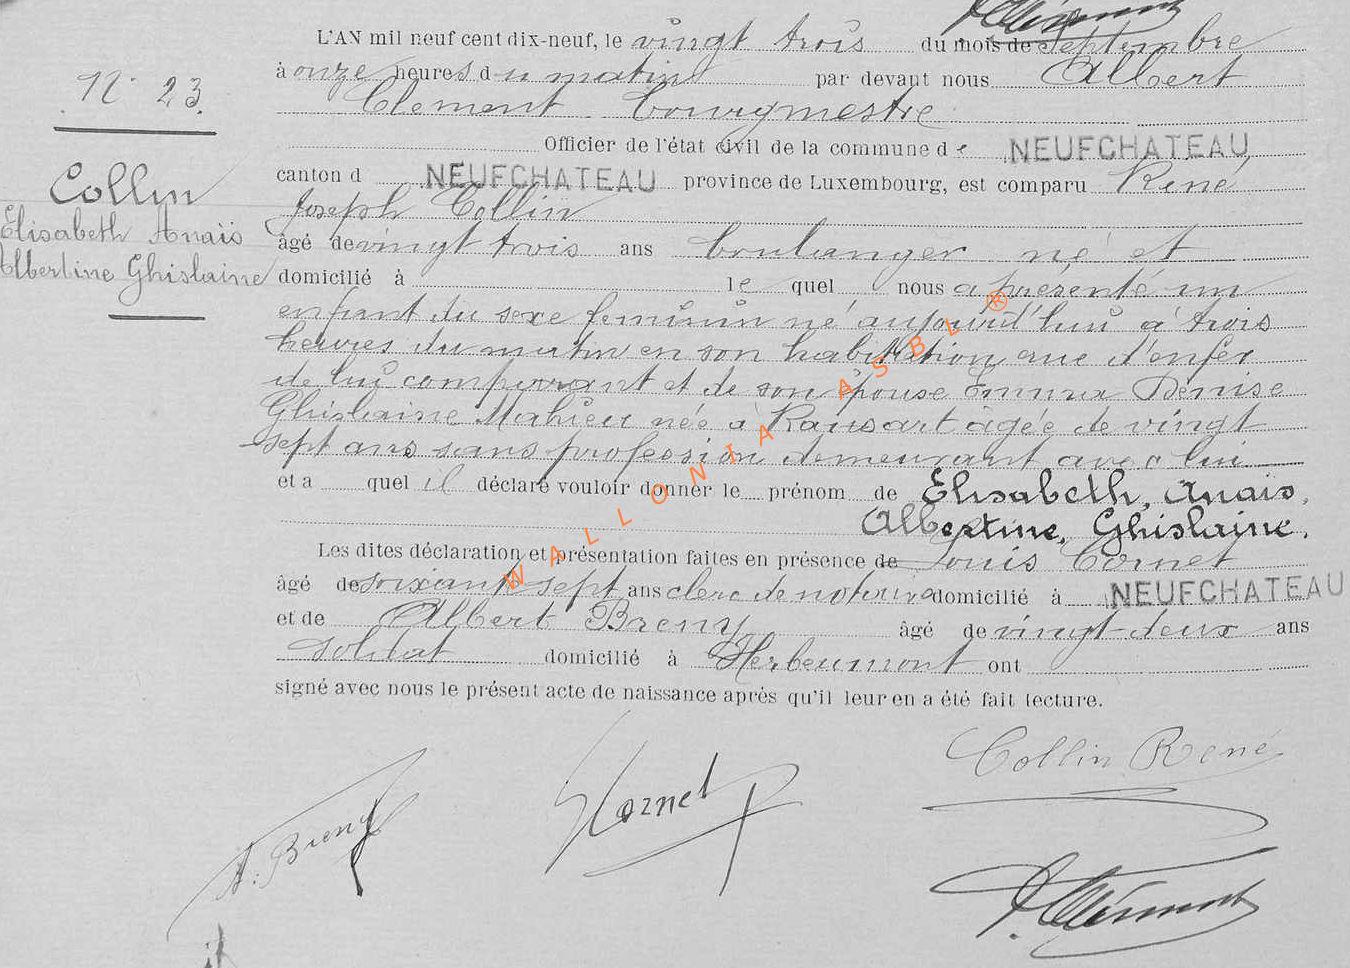 L'AN mil neuf cent dix-neuf, le vingt trois du mois de septembre
N° 23.
à onze heures du matin par devant nous Albert
Clement bourgmestre
Officier de l'état civil de la commune de NEUFCHATEAU
canton d NEUFCHATEAU province de Luxembourg, est comparu René
Collin
Elisabeth Anaïs
Albertine Ghislaine
Joseph Collin
âgé de vingt trois ans boulanger né et
domicilié à le quel nous a présenté un
enfant du sexe féminin né aujourd'hui à trois
heures du matin en son habitation rue d'enfer
de lui comparant et de son épouse Emma Denise
Ghislaine Mahieu née à Ransart âgée de vingt
sept ans sans profession demeurant avec lui
et a quel il déclaré vouloir donner le prénom de Elisabeth, Anaïs,
Albertine, Ghislaine.
Les dites déclaration et présentation faites en présence de Louis Cornet
âgé de soixante sept ans clerc de notaire domicilié à NEUFCHATEAU
et de Albert Breny âgé de vingt deux ans
soldat domicilié à Herbeumont ont
signé avec nous le présent acte de naissance après qu'il leur en a été fait lecture.
Collin René
Cornet
A. Breny
A. Clément
WALLONIA ASBL ®